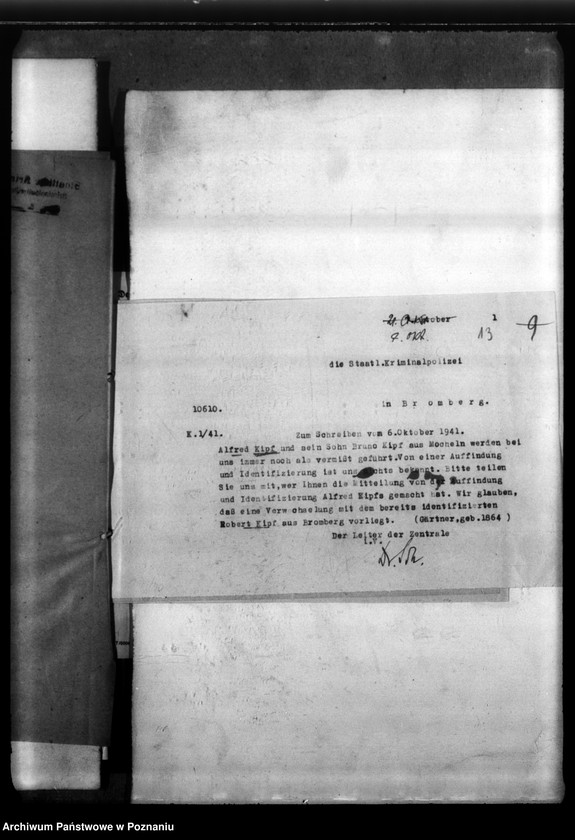 1
13 9
die Staatl.Kriminalpolizei
10610.
in Bromberg.
K.1/41.
Zum Schreiben vom 6.Oktober 1941.
Alfred Kipf und sein Sohn Bruno Kipf aus Mocheln werden bei
uns immer noch als vermißt geführt.Von einer Auffindung
und Identifizierung ist uns nichts bekannt. Bitte teilen
Sie uns mit,wer Ihnen die Mitteilung von der Auffindung
und Identifizierung Alfred Kipfs gemacht hat. Wir glauben,
daß eine Verwechselung mit dem bereits identifizierten
Robert Kipf aus Bromberg vorliegt. (Gärtner,geb.1864 )
Der Leiter der Zentrale
I.V.
Archiwum Państwowe w Poznaniu